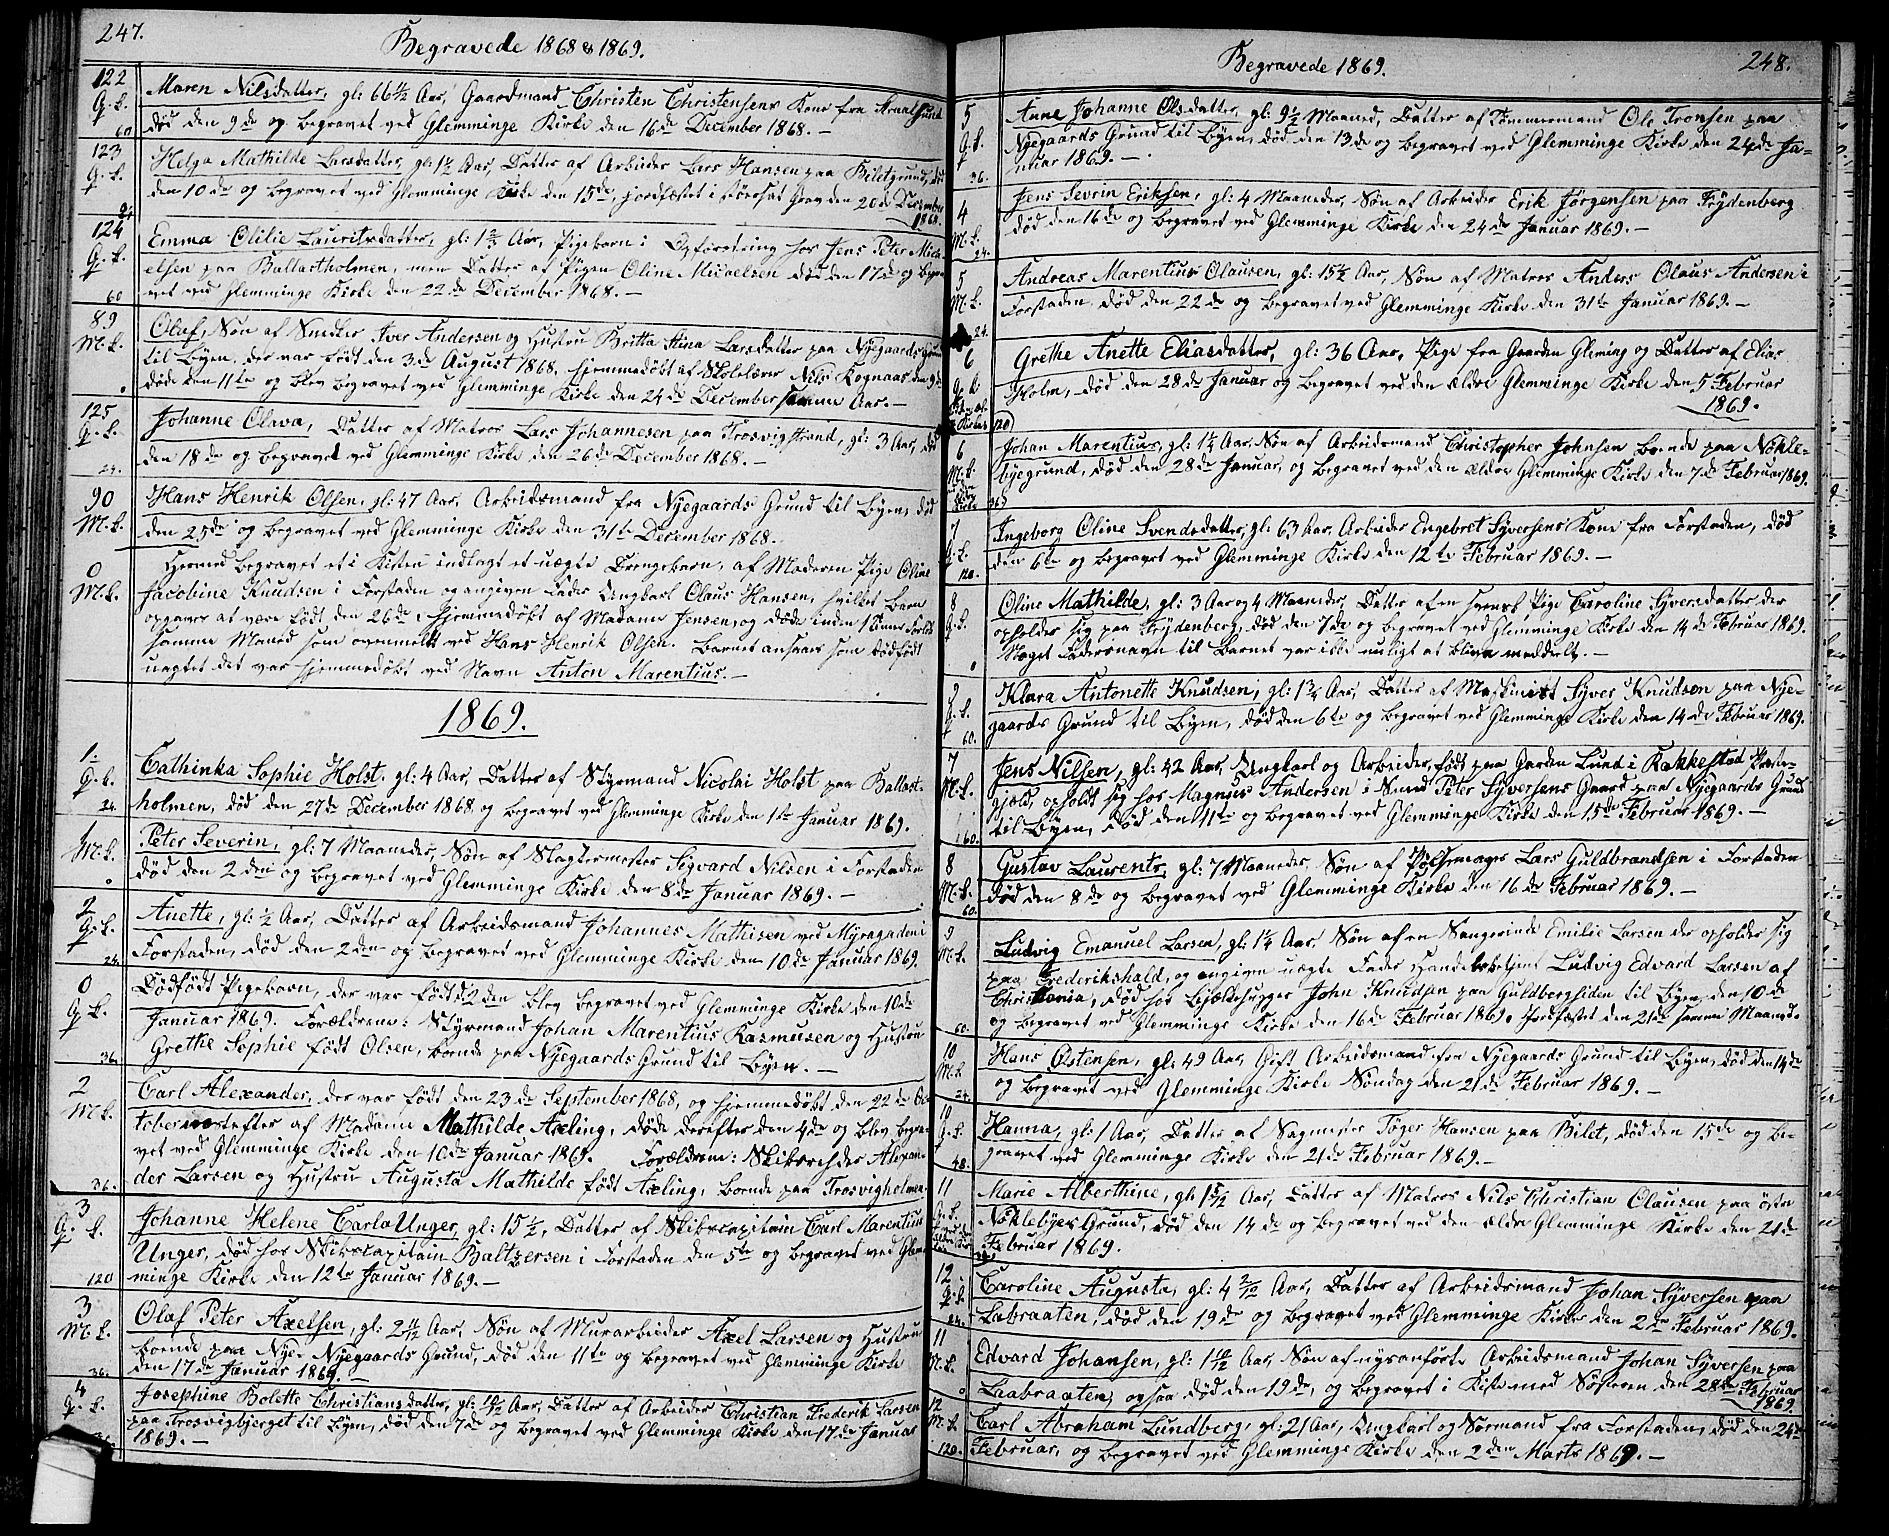 247.
Begravede 1868 & 1869.
122
Q. L.
60
Maren Nilsdatter, gl: 66 1/2 Aar, Gaardmand Christen Christensens Kone fra
død den 9de og begravet ved Glemminge Kirke den 16de December 1868. —
123
Q. L.
Helga Mathilde Larsdatter, gl: 1 1/2 Aar, Datter af Arbeider Lars Hansen paa Biletgrund, død
den 10de og begravet ved Glemminge Kirke den 15de, jordfæstet i størhest Grav den 20de December
1868.
124
Q. L.
60
Emma Otilie Lauritsdatter, gl: Aar, Pigebarn i Opfostring hos Jens Peter Mich-
elsen paa Ballastholmen, men Datter af Pigen Oline Micaelsen død den 17de og begra-
vet ved Glemminge Kirke den 22de December 1868. —
89
M. L.
0
Oluf, Søn af Snedker Iver Andersen og Hustru Britta Stina Larsdatter paa Nyegaards Grund
til Byen, der var født den 3de August 1868, hjemmedøbt af Skolelærer Nils Rognaas den 9de
døde den 11te og blev begravet ved Glemminge Kirke den 24de December samme Aar. —
125
Q. L.
24.
Johanne Olava, Datter af Matros Lars Johannesen paa Trosvigstrand, gl: 3 Aar, død
den 18de og begravet ved Glemminge Kirke den 26de December 1868. —
90
M. L.
Hans Henrik Olsen, gl: 47 Aar, Arbeidsmand fra Nyegaards Grund til Byen, død
den 25de og begravet ved Glemminge Kirke den 31te December 1868.
0
M. L.
Hermed begravet et i Kisten indlagt et uægte Drengebarn, af Moderen Pige Oline
Jacobine Knudsen i Forstaden og angiven Fader Ungkarl Claus Hansen, hvilket Barn
opgaves at være født den 26de, hjemmedøbt af Madam Jensen, og døde inden 1 Times Forløb
samme Maaned som ovenmeldt ved Hans Henrik Olsen. Barnet ansaaes som dødfødt
uagtet det var hjemmedøbt ved Navn Anton Marentius. —
1869.
1
Q. L.
24.
Cathinka Sophie Holst. gl: 4 Aar, Datter af Styrmand Nicolai Holst paa Ballast-
holmen, død den 27de December 1868 og begravet ved Glemminge Kirke den 1te Januar 1869.
1
M. L.
0
Peter Severin, gl: 7 Maaneder, Søn af Slagtermester Sigvard Nilsen i Forstaden
død den 2den og begravet ved Glemminge Kirke den 8de Januar 1869. —
2
Q. L.
24.
Anette, gl: 1/2 Aar, Datter af Arbeidsmand Johannes Mathisen ved Myragaden i
Forstaden, død den 2den og begravet ved Glemminge Kirke den 10de Januar 1869.
0
Q. L.
36.
Dødfødt Pigebarn, der var født d: 2den blev begravet ved Glemminge Kirke den 10de
Januar 1869. Forældrene: Styrmand Johan Marentius Rasmusen og Hustru
Grethe Sophie født Olsen, boende paa Nyegaards Grund til Byen. —
2
M. L.
36.
Carl Alexander, der var født den 23de September 1868, og hjemmedøbt den 22de Oc-
tober næstefter af Madam Mathilde Axeling, døde derefter den 4de og blev begra-
vet ved Glemminge Kirke den 10de Januar 1869. Forældrene: Skibsrheder Alexan-
der Larsen og Hustru Augusta Mathilde født Axeling, boende paa Trosvigholmen.
3
Q. L.
120
Johanne Helene Carla Unger, gl: 15 1/2, Datter af Skibscapitain Carl Marentius
Unger, død hos Skibscapitain Baltzersen i Forstaden den 5te og begravet ved Glem-
minge Kirke den 12te Januar 1869. —
3
M. L.
36.
Olaf Peter Axelsen, gl: 2 11/12 Aar, Søn af Murarbeider Axel Larsen og Hustru
boende paa Nye-Nyegaards Grund, død den 11te og begravet ved Glemminge Kirke
den 17de Januar 1869.
4
Q. L.
36.
Josephine Bolette Christiansdatter, gl: 10/12 Aar, Datter af Arbeider Christian Frederik Larsen
paa Trosvigbjerget til Byen, død den 7de og begravet ved Glemminge Kirke den 17de Januar
1869. —
Begravede 1869.
248.
5
Q. L.
36.
Anne Johanne Olsdatter, gl: 9 1/2 Maaned, Datter af Tømmermand Ole Tronsen paa
Nyegaards Grund til Byen, død den 13de og begravet ved Glemminge Kirke den 24de Ja-
nuar 1869. —
4
M. L.
24.
Jens Sevrin Eriksen, gl: 4 Maaneder, Søn af Arbeider Erik Jørgensen paa Frydenberg
død den 16de og begravet ved Glemminge Kirke den 24de Januar 1869. —
5
M. L.
24.
Andreas Marentius Olausen, gl: 15 1/2 Aar, Søn af Matros Anders Olaus Andersen i
Forstaden, død den 22de og begravet ved Glemminge Kirke den 31te Januar 1869. —
6
Q. L.
120
Grethe Anette Eliasdatter, gl: 36 Aar, Pige fra Gaarden Gleming og Datter af Elias
Holm, død den 28de Januar og begravet ved den ældre Glemminge Kirke den 5 Februar
1869.
6
M. L.
36
Johan Marentius, gl: Aar, Søn af Arbeidsmand Christopher Johnsen boende paa Nøkle-
byegrund, død den 28de Januar, og begravet ved den ældre Glemminge Kirke den 7de Februar 1869.
7
Q. L.
120.
Ingeborg Oline Svendsdatter, gl: 63 Aar, Arbeider Engebret Syversens Kone fra Forstaden, død
den 6te og begravet ved Glemminge Kirke den 12te Februar 1869. —
8
Q. L.
0
Oline Mathilde, gl: 3 Aar og 4 Maaneder, Datter af en svensk Pige Caroline Syversdatter der
opholder sig paa Frydenberg, død den 7de og begravet ved Glemminge Kirke den 14de Februar 1869.
Noget Fadersnavn til Barnet var ikke muligt at blive meddeelt. —
9
Q. L.
60.
Klara Antonette Knudsen, gl: 1 3/4 Aar, Datter af Maskinist Syver Knudsen paa Nye-
gaards Grund til Byen, død den 6te og begravet ved Glemminge Kirke den 14de Februar 1869.
7
M. L.
60.
Jens Nilsen, gl: 42 Aar, Ungkarl og Arbeider, født paa Gaarden Lund i Rakkestad Præste-
gjeld, opholdt sig hos Magnus Andersen i Smed Peter Syversens Gaard paa Nyegaards Grund
til Byen, død den 11te og begravet ved Glemminge Kirke den 15de Februar 1869. —
8
M. L.
60.
Gustav Laurents, gl: 7 Maaneder, Søn af Pølsemager Lars Guldbrandsen i Forstaden
død den 8de og begravet ved Glemminge Kirke den 16de Februar 1869. —
9
M. L.
60.
Ludvig Emanuel Larsen, gl: 1 1/4 Aar, Søn af en Sangerinde Emilie Larsen der opholder sig
paa Frederikshald, og angiven uægte Fader Handelsbetjent Ludvig Edvard Larsen af
Christiania, død hos Bjælkehugger John Knudsen paa Guldbergsiden til Byen, den 10de
og begravet ved Glemminge Kirke den 16de Februar 1869. Jordfæstet den 21de samme Maaned.
10
M. L.
24.
Hans Østensen, gl: 49 Aar, Gift Arbeidsmand fra Nyegaards Grund til Byen, død den 14de
og begravet ved Glemminge Kirke Søndag den 21de Februar 1869. —
10
Q. L.
48.
Hanna, gl: 1 Aar, Datter af Sagmester Tøger Hansen paa Bilet, død den 15de og be-
gravet ved Glemminge Kirke den 21de Februar 1869. —
11
Q. L.
Marie Alberthine, gl: 1 5/12 Aar, Datter af Matros Nils Christian Clausen paa østre
Nøklebyes Grund, død den 14de og begravet ved den ældre Glemminge Kirke den 21de
Februar 1869.
12
Q. L.
24.
Caroline Augusta, gl: 4 2/12 Aar, Datter af Arbeidsmand Johan Syversen paa
Labraaten, død den 19de og begravet ved Glemminge Kirke den Februar 1869.
11
M. L.
0
Edvard Johansen, gl: 1 10/12 Aar, Søn af nysanførte Arbeidsmand Johan Syversen paa
Laabraaten, ogsaa død den 19de, og begravet i Kiste med Søsteren den 28de Februar
1869.
12
M. L.
120.
Carl Abraham Lundberg, gl: 21 Aar, Ungkarl og Sømand fra Forstaden, død den 24de
Februar, og begravet ved Glemminge Kirke den 2den Marts 1869. —